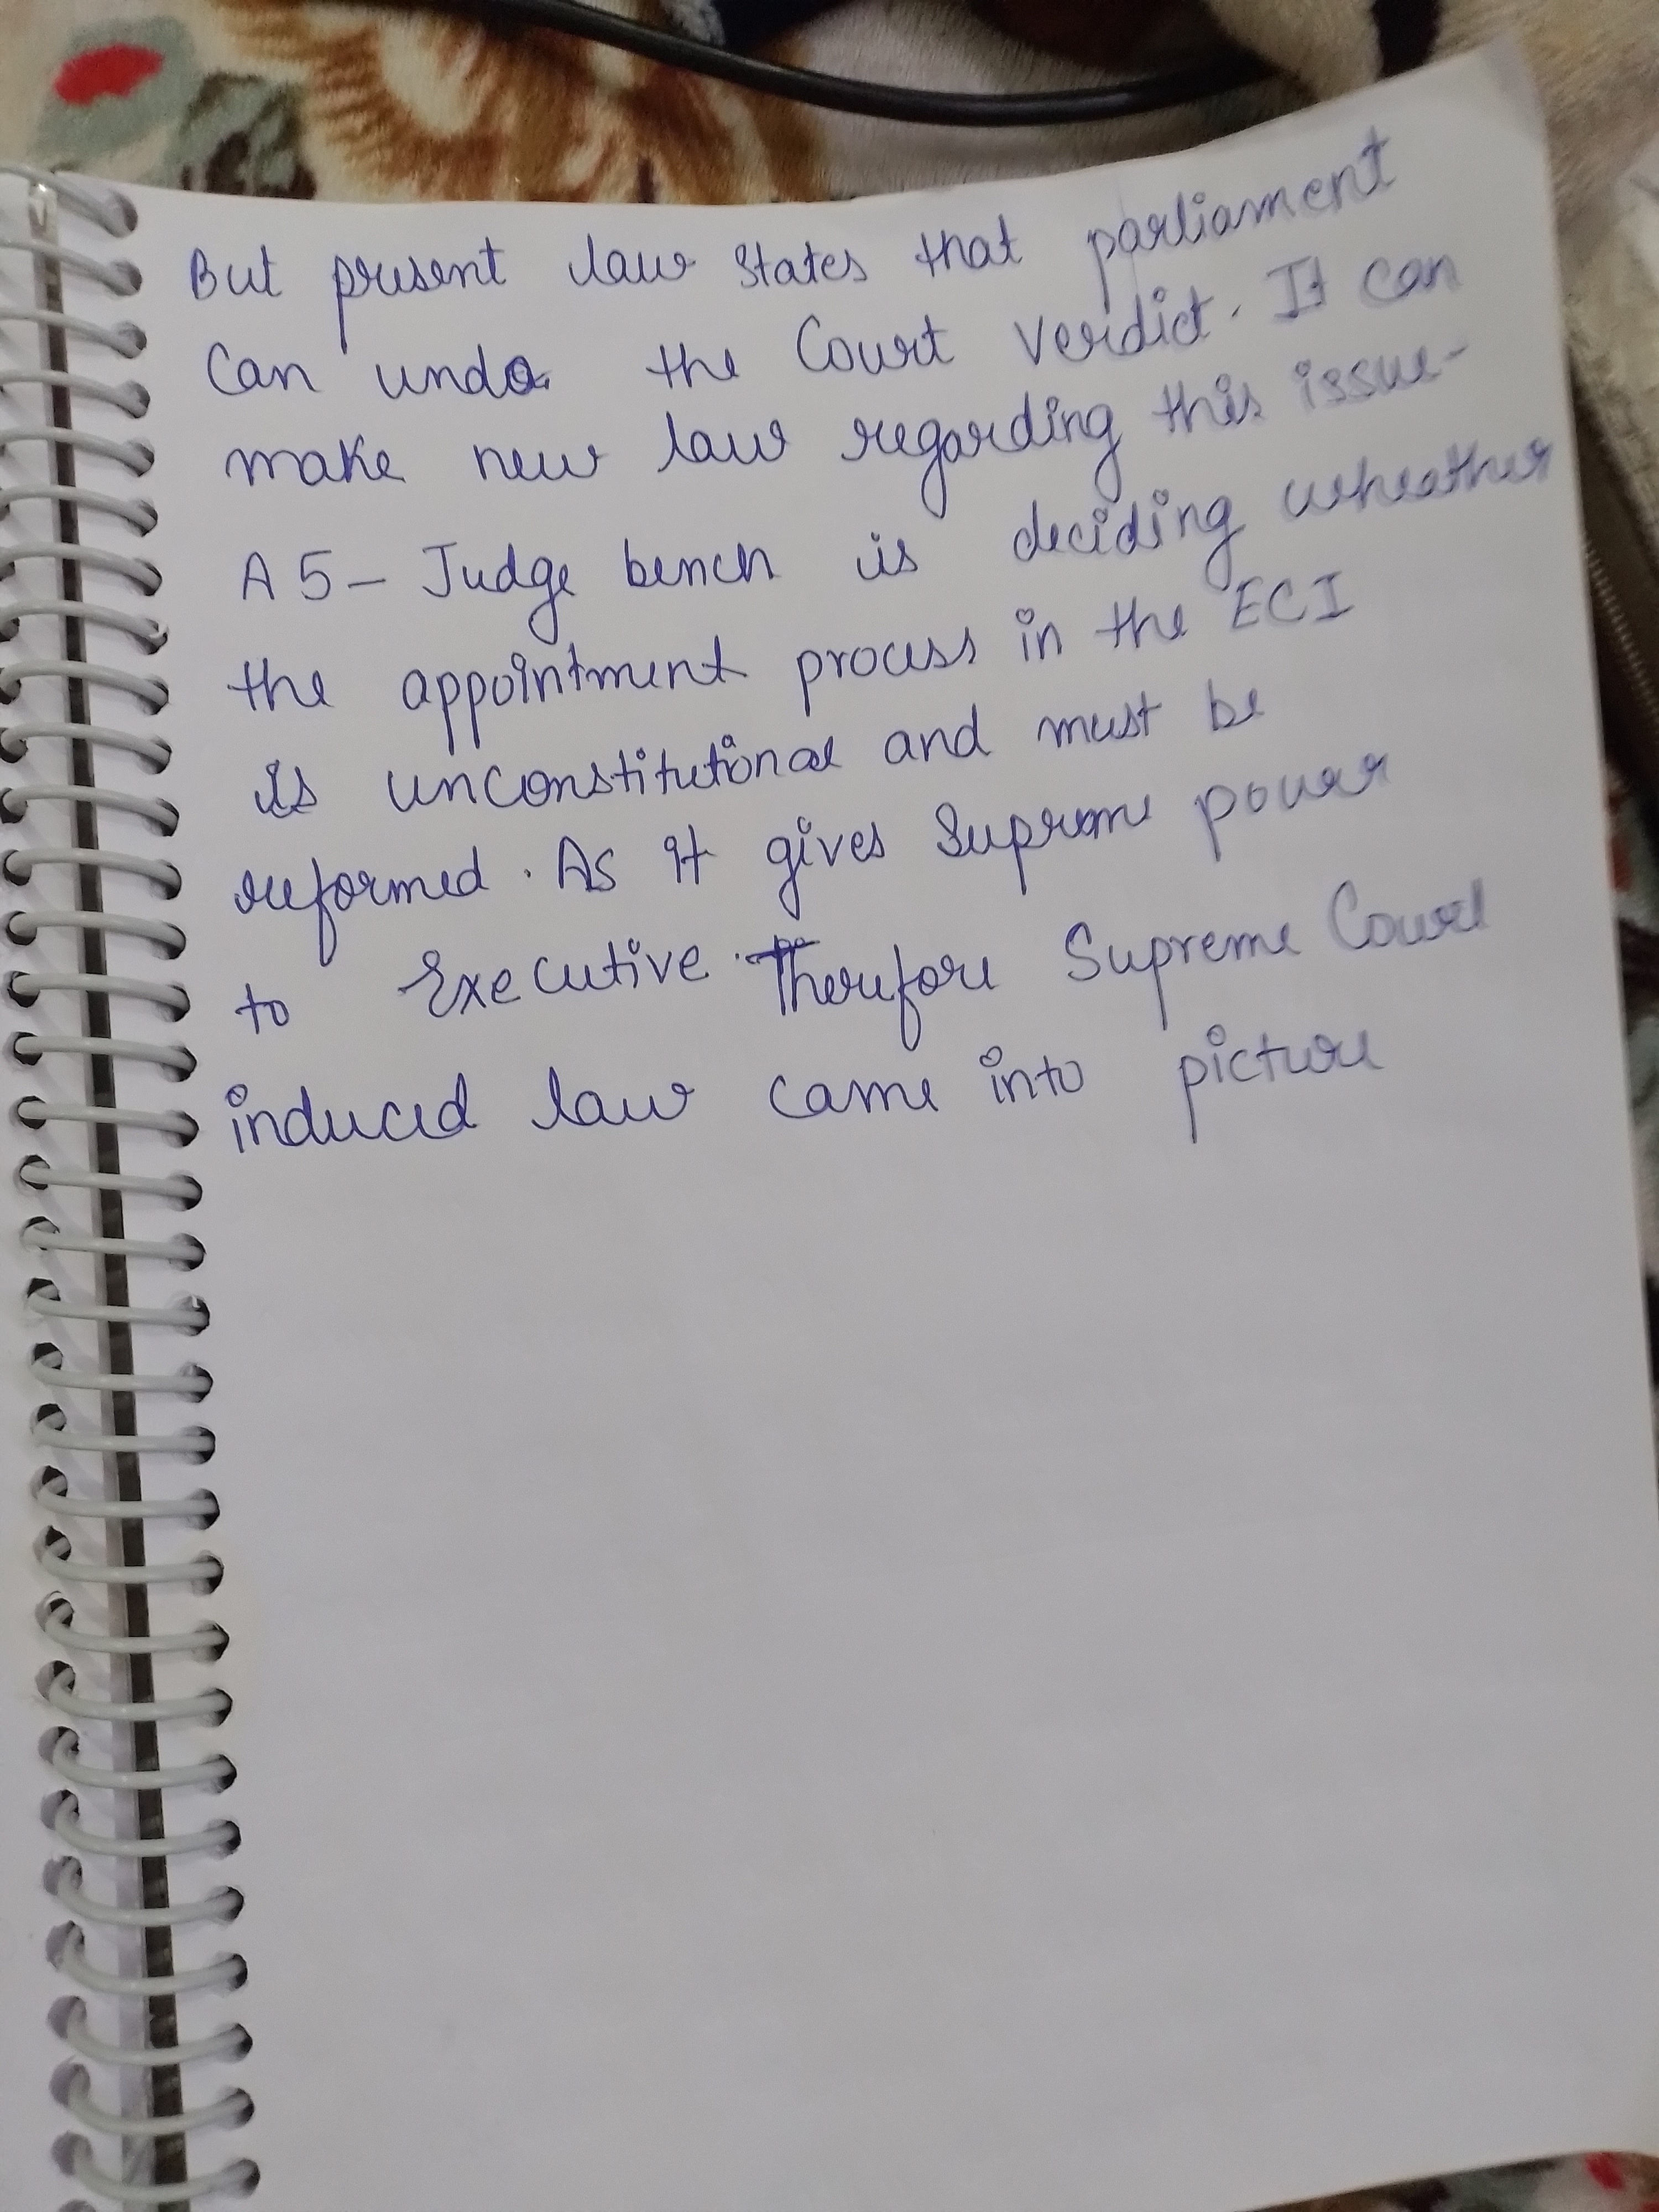 But present law states that parliament
can undo the Court verdict. It can
make new law regarding this issue-
A 5- Judge bench is deciding wheather
the appointment process in the ECI
is unconstitutional and must be
reformed. As it gives supreme power
to Executive. Therefore Supreme Court
induced law came into picture